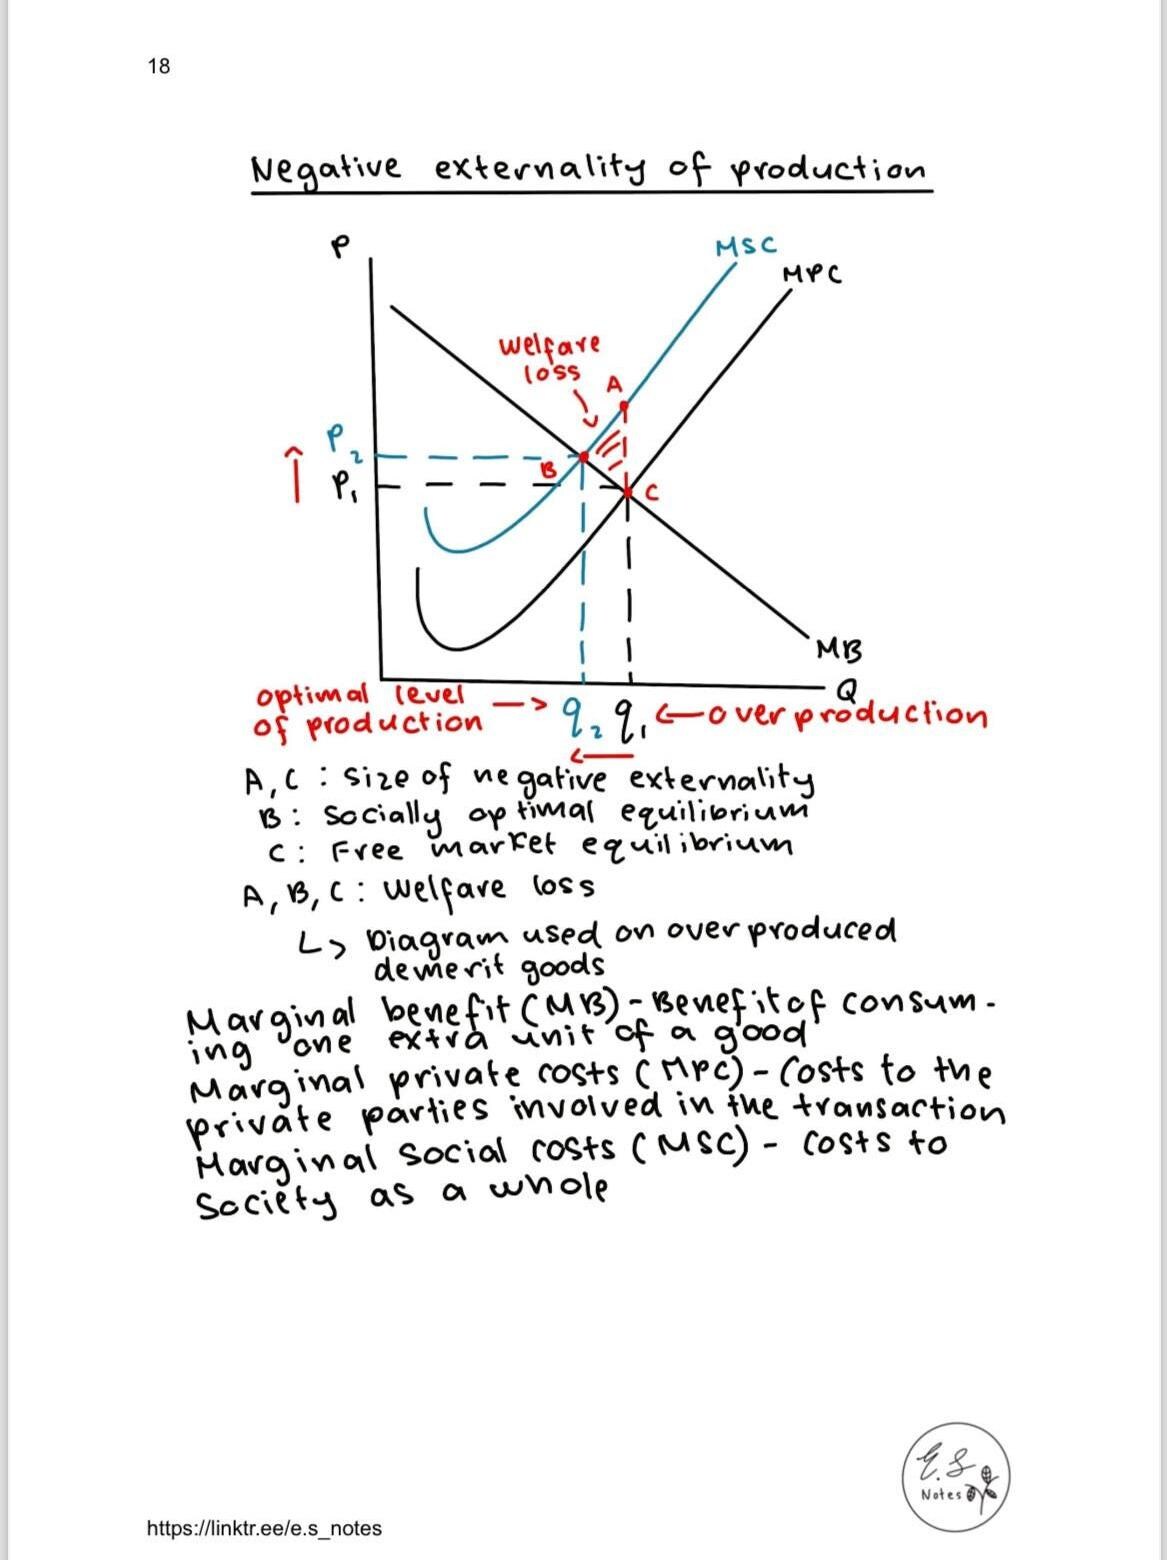 18
Negative externality of production
P
MSC
MPC
welfare
loss
A
P2
B
P1
C
MB
Q
optimal level
of production
q2 q1
over production
A, C : size of negative externality
B : Socially optimal equilibrium
C : Free market equilibrium
A, B, C : welfare loss
Diagram used on over produced
demerit goods
Marginal benefit (MB) - Benefit of consum-
ing one extra unit of a good
Marginal private costs (MPC) - Costs to the
private parties involved in the transaction
Marginal social costs (MSC) - costs to
society as a whole
E.S
Notes
https://linktr.ee/e.s_notes